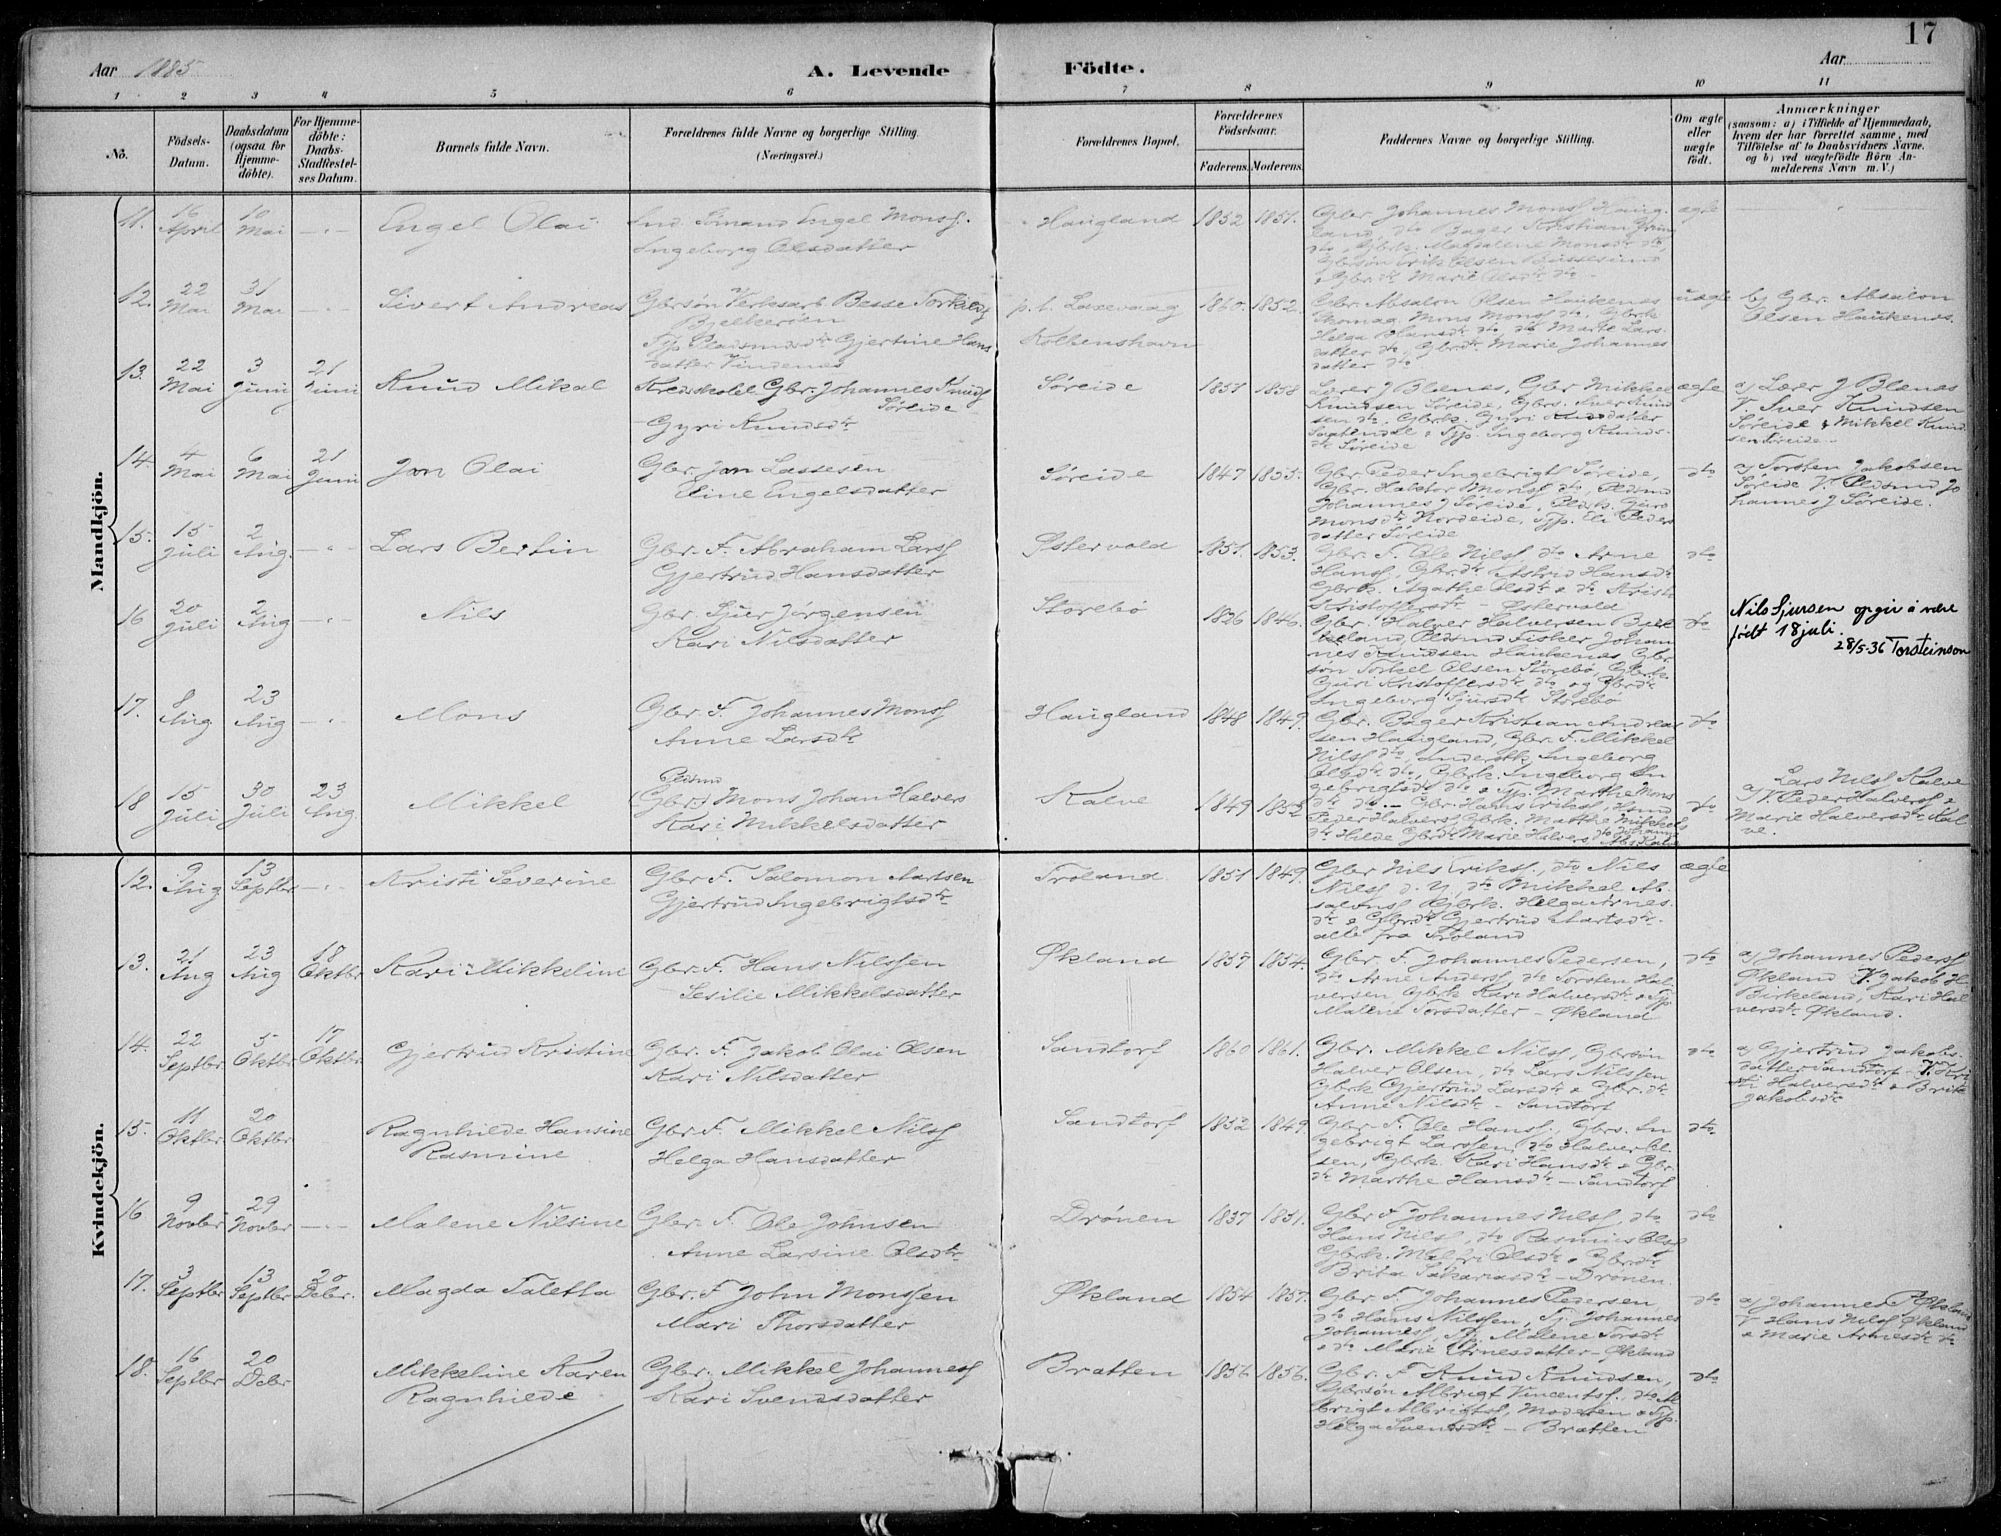 17
Aar 1885
A. Levende Födte.
Aar
1 2 3 4 5 6 7 8 9 10 11
No.
Födsels-Datum.
Daabsdatum (ogsaa for Hjemme-döbte).
For Hjemme-döbte: Daabs-Stadfæstel-ses Datum.
Barnets fulde Navn.
Forældrenes fulde Navne og borgerlige Stilling.
(Næringsvei.)
Forældrenes Bopæl.
Forældrenes Födselsaar.
Faderens. Moderens.
Faddernes Navne og borgerlige Stilling.
Om ægte eller uægte födt.
Anmærkninger
(saasom: a) i Tilfælde af Hjemmedaab, hvem der har forrettet samme, med Tilföielse af to Daabsvidners Navne, og b) ved uægtefödte Börn An-melderens Navn m. V.)
Mandkjön.
11. 16 April 10 Mai Engel Olai
Ind. Sømand Engel Monss.
Ingeborg Olsdatter
Haugland 1852 1851.
Gbr Johannes Monss Haug-
land, dto Bager Kristian
dto, Gbrk. Magdalene Monsdtr dto,
Gbrsøn Erik Olsen
Gbrdtr Marie Olsdtr dto
ægte
12. 22 Mai 31 Mai Sivert Andreas
Gbrsøn Verksarb Besse Torkelss
Bjelkerøen
Gjertine Hans
datter Vindenes
p.t. Laxevaag
Kolbenshavn
1860. 1852.
Gbr. Absalon Olsen Haukenæs
Mons Monss dto, Gbrk
Helga Hansdtr dto, dto Marte Lars-
datter dto, Gbrdtr. Marie Johannes
datter dto
uægte b) Gbr. Absalon
Olsen Haukenæs.
13. 22 Mai 3 Juni 21 Juni Knud Mikal
Gbr. Johannes Knuds
Søreide
Gyri Knudsdtr
Søreide 1851 1858
Lærer J Blænes, Gbr Mikkel
Knudsen Søreide, Gbrs. Iver Knud
sen dto, Gbrk. Gyri Knudsdatter
Tjp. Ingeborg Knuds-
dtr Søreide
ægte a) Lærer J Blænes
V. Iver Knudsen
Søreide & Mikkel Knud
sen Søreide.
14. 4 Mai 6 Mai 21 Juni Jon Olai
Gbr. Jon Lassesen
Eline Engelsdatter
Søreide 1847 1855.
Gbr Peder Ingebrigts Søreide,
Gbr. Halstor Monss dto, Pldsmd
Johannes J Søreide, Pldsk. Guro
Monsdtr Nordeide, Tjp. Eli Peders
datter Søreide
dto a) Torsten Jakobsen
Søreide V. Pldsmd Jo
hannes J Søreide.
15. 15 Juli 2 Aug. Lars Bertin
Gbr. F. Abraham Larss
Gjertrud Hansdatter
Østervold 1851. 1853.
Gbr. F. Ole Nilss dto Arne
Hanss, Gbr.dtr Astrid Hansdtr
Gbrk. Agathe Olsdtr & dtr Kristi
Kristoffersdtr - Østervold
dto
16 20 Juli 2 Aug Nils
Gbr. Sjur Jörgensen
Kari Nilsdatter
Storebø 1826 1846.
Gbr. Halver Halversen Birke
land Pldsmd Fisker Johan
nes Knudsen Haukenæs Gbr.
søn Torkel Olsen Storebø, Gbrk.
Guri Kristoffersdtr dto og Gbrdtr
Ingeborg Sjursdtr Storebø
dto Nils Sjursen opgir å være
født 18 juli.
28/5-36 Torsteinson
17. 8 Aug 23 Aug Mons
Gbr. F. Johannes Monss
Anne Larsdtr
Haugland 1848 1849.
Gbr. Bager Kristian Andreas
sen Haugland, Gbr. F. Mikkel
Nilss dto, Ingeborg
Olsdtr dto, Gbrk. Ingeborg In
gebrigtsdtr dto & Tjp. Marthe Mons
dtr dto.
dto
18 15 Juli 30 Juli 23 Aug. Mikkel
Pldsmd
(Gbr.) Mons Johan Halvers
Kari Mikkelsdatter
Kalve 1849 1852
Gbr. Hans Erikss,
Peder Halverss Gbrk. Matthe Mikkels
dtr Hilde Gbrdtr Marie Halvers
dto Lars Nilss Kalve
a) V. Peder Halverss &
Marie Halversdtr Kal
ve.
Kvindekjön.
12. 9 Aug 13 Septbr Kristi Severine
Gbr F. Salomon Aartsen
Gjertrud Ingebrigtsdtr
Troland 1851 1849.
Gbr Nils Erikss., dto Nils
Nilss d. Y, dto Mikkel Ab-
salonss Gbrk. Helga Arnes-
dtr & Gbrdtr Gjertrud Aartsdtr.
alle fra Troland
ægte
13. 21 Aug 23 Aug 18 Oktbr Kari Mikkeline
Gbr. F. Hans Nilssen
Sesilie Mikkelsdatter
Økland 1857 1854.
Gbr. F. Johannes Pedersen,
dto Arne Anderss, dto Torsten Hal-
versen, Gbrk Kari Halversdtr & Tjp
Malene Torsdatter - Økland
dto a) Johannes Pederss
Økland V. Jakob H.
Birkeland, Kari Hal
versdtr Økland.
14. 22 Septbr. 5 Oktbr 17 Oktbr. Gjertrud Kristine
Gbr. F. Jakob Olai Olsen
Kari Nilsdatter
Sandtorf 1860 1861.
Gbr. Mikkel Nilss, Gbrsøn
Halver Olsen, dto Lars Nilssen
Gbrk Gjertrud Larsdtr & Gbr.dtr
Anne Nilsdtr - Sandtorf
dto a) Gjertrud Jakobs-
datter Sandtorf - V. Kri
sti Halversdtr & Brita
Jakobsdtr
15. 11 Oktbr 20 Oktbr Ragnhilde Hansine
Rasmine
Gbr F. Mikkel Nilss
Helga Hansdatter
Sandtorf 1852 1849
Gbr F. Ole Hanss., Gbrs. In
gebrigt Larssen, dto Halver Ol-
sen, Gbrk. Kari Hansdtr & Gbr.
dtr Marthe Hansdtr - Sandtorf
dto
16 9 Novbr 29 Novbr Malene Nilsine
Gbr. F. Ole Johnsen
Anne Larsine Olsdtr
Drönen 1857 1851.
Gbr F Johannes Nilss, dto
Hans Nilss, dto Rasmus Olss
Gbrk. Malfri Olsdtr & Gbrdtr
Brita Sakariasdtr - Drönen.
dto
17. 3 Septbr 13 Septbr 20 Decbr. Magda Taletta
Gbr. F John Monssen
Mari Thorsdatter
Økland 1854 1857.
Gbr. F. Johannes Pedersen,
dto Hans Nilssen, Tj. Johannes
Johanness, Tj. Malene Torsdtr
& dto Marie Arnesdatter - Økland
dto a) Johannes P Økland
V Hans Nilss Økland
& Marie Arnesdtr dto
18. 16 Septbr 20 Decbr Mikkeline Karen
Ragnhilde
Gbr. Mikkel Johanness
Kari Svendsdatter
Bratten 1856 1856.
Gbr. F Knud Knudsen,
Gbrsøn Albrigt Vincentss., dto Al
brigt Albrigtss, Moderen & Tjp.
Helga Svendsdtr - Bratten
dto